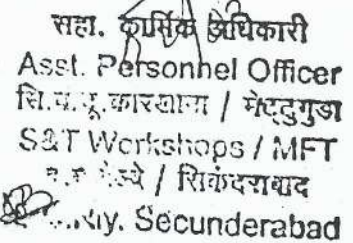 सहा. कार्मिक अधिकारी
Asst. Personnel Officer
सि.व.दू.कारखाना / मेट्टुगुडा
S&T Workshops / MFT
रेल्वे / सिकंदराबाद
Rly. Secunderabad